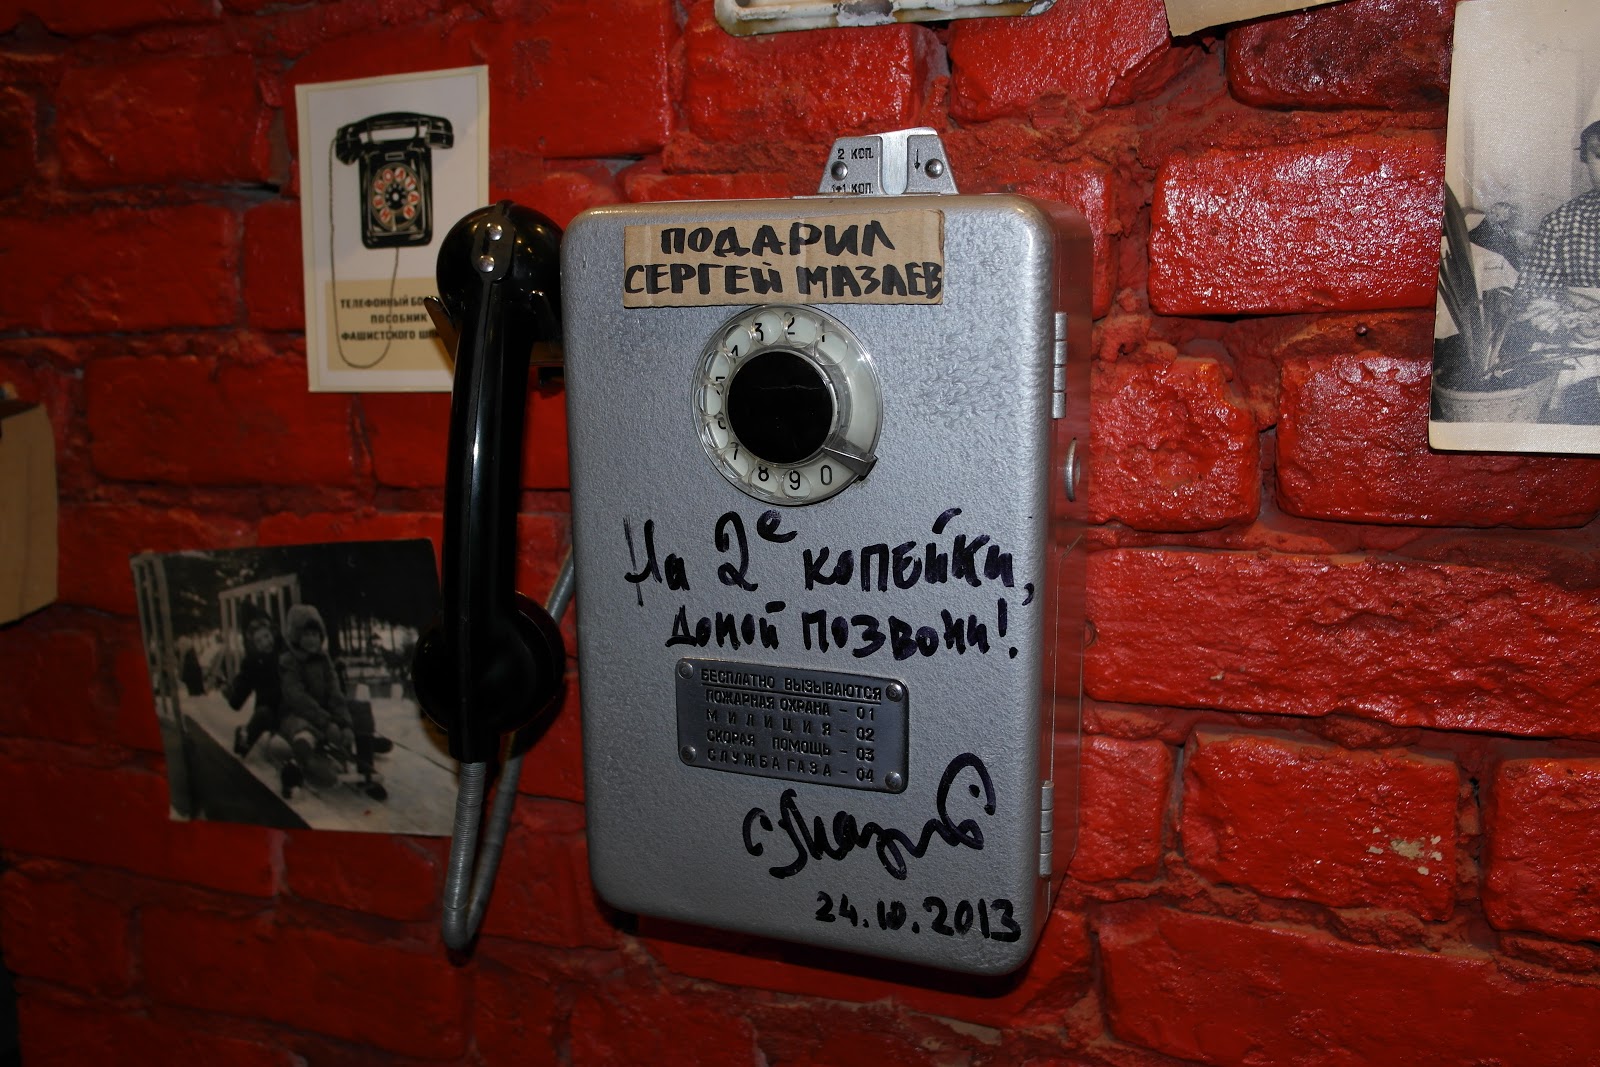 2 КОП.
1+1 КОП.
ПОДАРИЛ
СЕРГЕЙ МАЗАЕВ
ТЕЛЕФОННЫЙ
ПОСОБНИК
ФАШИСТСКОГО
1
2
3
4
5
6
7
8
9
0
На 2е копейки,
домой позвони!
БЕСПЛАТНО ВЫЗЫВАЮТСЯ
ПОЖАРНАЯ ОХРАНА - 01
МИЛИЦИЯ - 02
СКОРАЯ ПОМОЩЬ - 03
СЛУЖБА ГАЗА - 04
24.10.2013